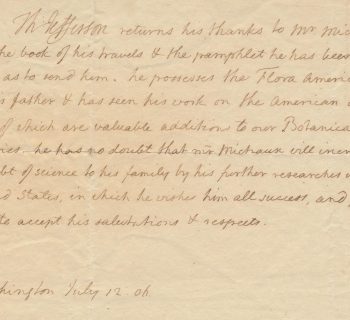 Th Jefferson returns his thanks to Mr. Mic
he book of his travels & the pamphlet he has been
as to send him. he possesses the Flora America
s father & has seen his work on the American
of which are valuable additions to our Botanica
ies. he has no doubt that mr Michaux will incre
bt of science to his family by his further researches
d States, in which he wishes him all success, and
to accept his salutations & respects.
hington July 12. 06.